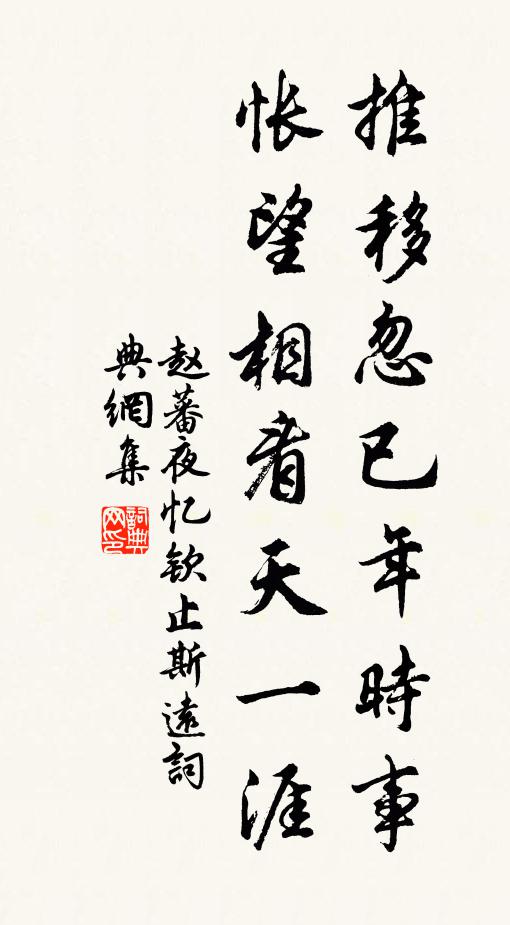 推移忽已年時事
怅望相看天一涯
赵蕃夜忆钦止斯遠詞
典網集
詞典
网印